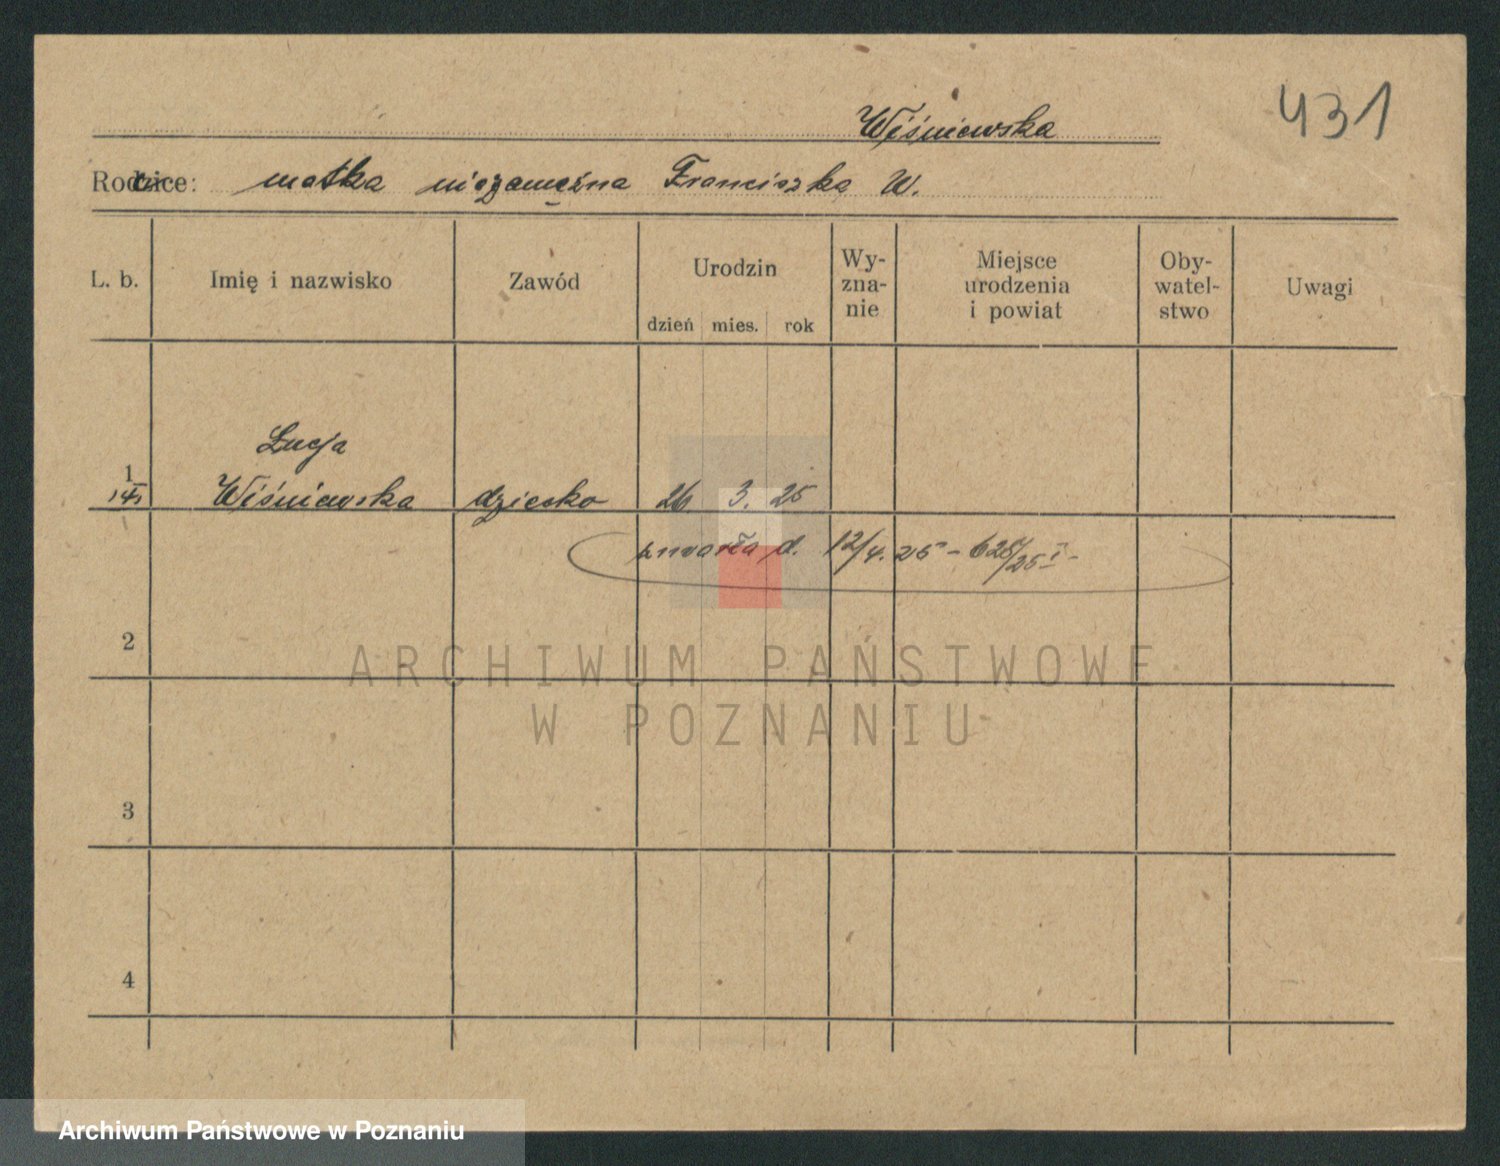 431
Wiśniewska
Rodzice: matka niezamężna Franciszka W.
L. b. Imię i nazwisko Zawód Urodzin dzień mies. rok Wy-zna-nie Miejsce urodzenia i powiat Oby-watel-stwo Uwagi
Łucja
1 Wiśniewska dziecko 26. 3. 25
zmarła d. 12/4. 25 - 625/25 I -
2
3
4
ARCHIWUM PAŃSTWOWE
W POZNANIU
Archiwum Państwowe w Poznaniu